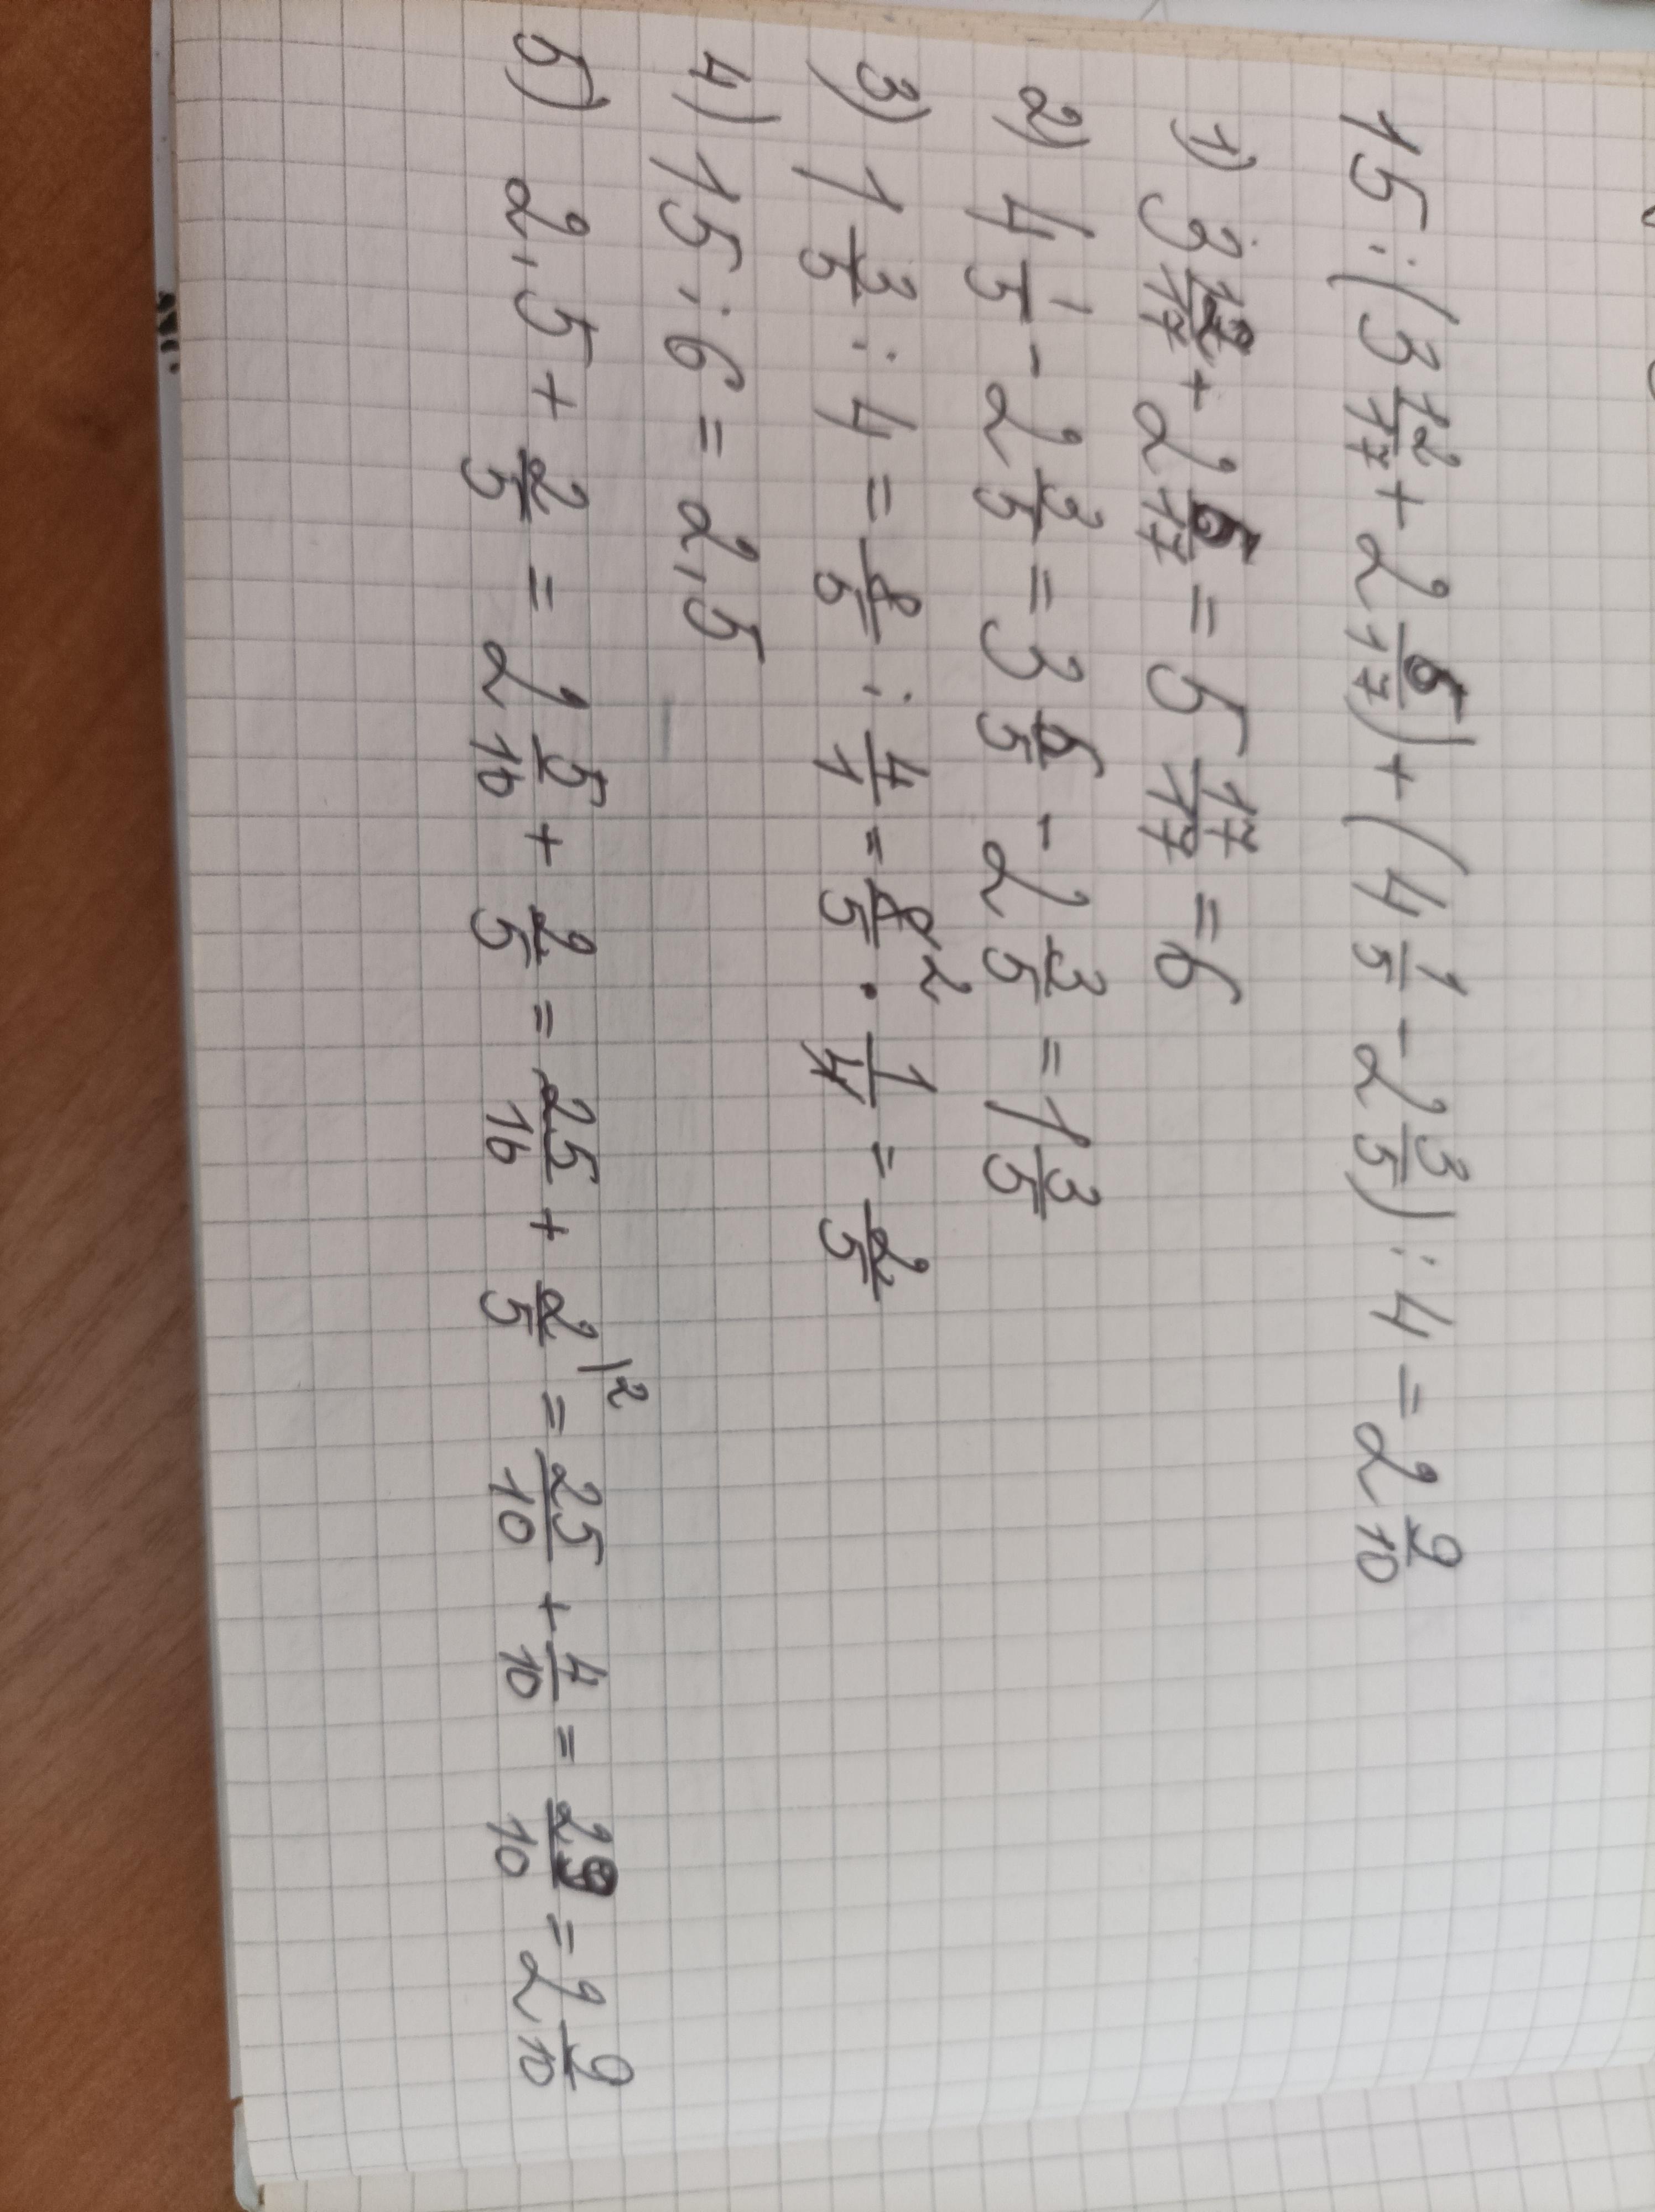 15 : (3 12/17 + 2 5/17) + (4 1/5 - 2 3/5) : 4 = 2 9/10
1) 3 12/17 + 2 5/17 = 5 17/17 = 6
2) 4 1/5 - 2 3/5 = 3 6/5 - 2 3/5 = 1 3/5
3) 1 3/5 : 4 = 8/5 : 4/1 = 8/5 ² · 1/4 = 2/5
4) 15 : 6 = 2,5
5) 2,5 + 2/5 = 2 5/10 + 2/5 = 25/10 + 2/5 |2 = 25/10 + 4/10 = 29/10 = 2 9/10